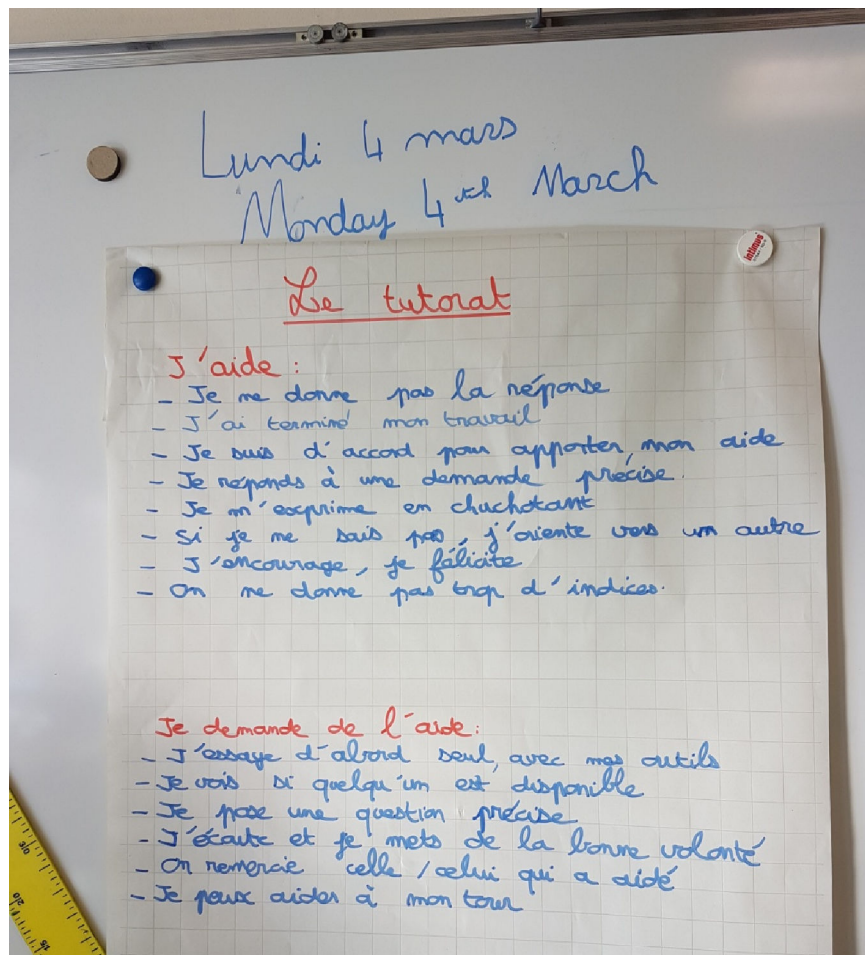 Lundi 4 mars
Monday 4th March
intimus
Le tutorat
J'aide :
- Je ne donne pas la réponse
- J'ai terminé mon travail
- Je suis d'accord pour apporter mon aide
- Je réponds à une demande précise.
- Je m'exprime en chuchotant
- Si je ne sais pas, j'oriente vers un autre
- J'encourage, je félicite
- On ne donne pas trop d'indices.
Je demande de l'aide :
- J'essaye d'abord seul, avec mes outils
- Je vois si quelqu'un est disponible
- Je pose une question précise
- J'écoute et je mets de la bonne volonté
- On remercie celle / celui qui a aidé
- Je peux aider à mon tour